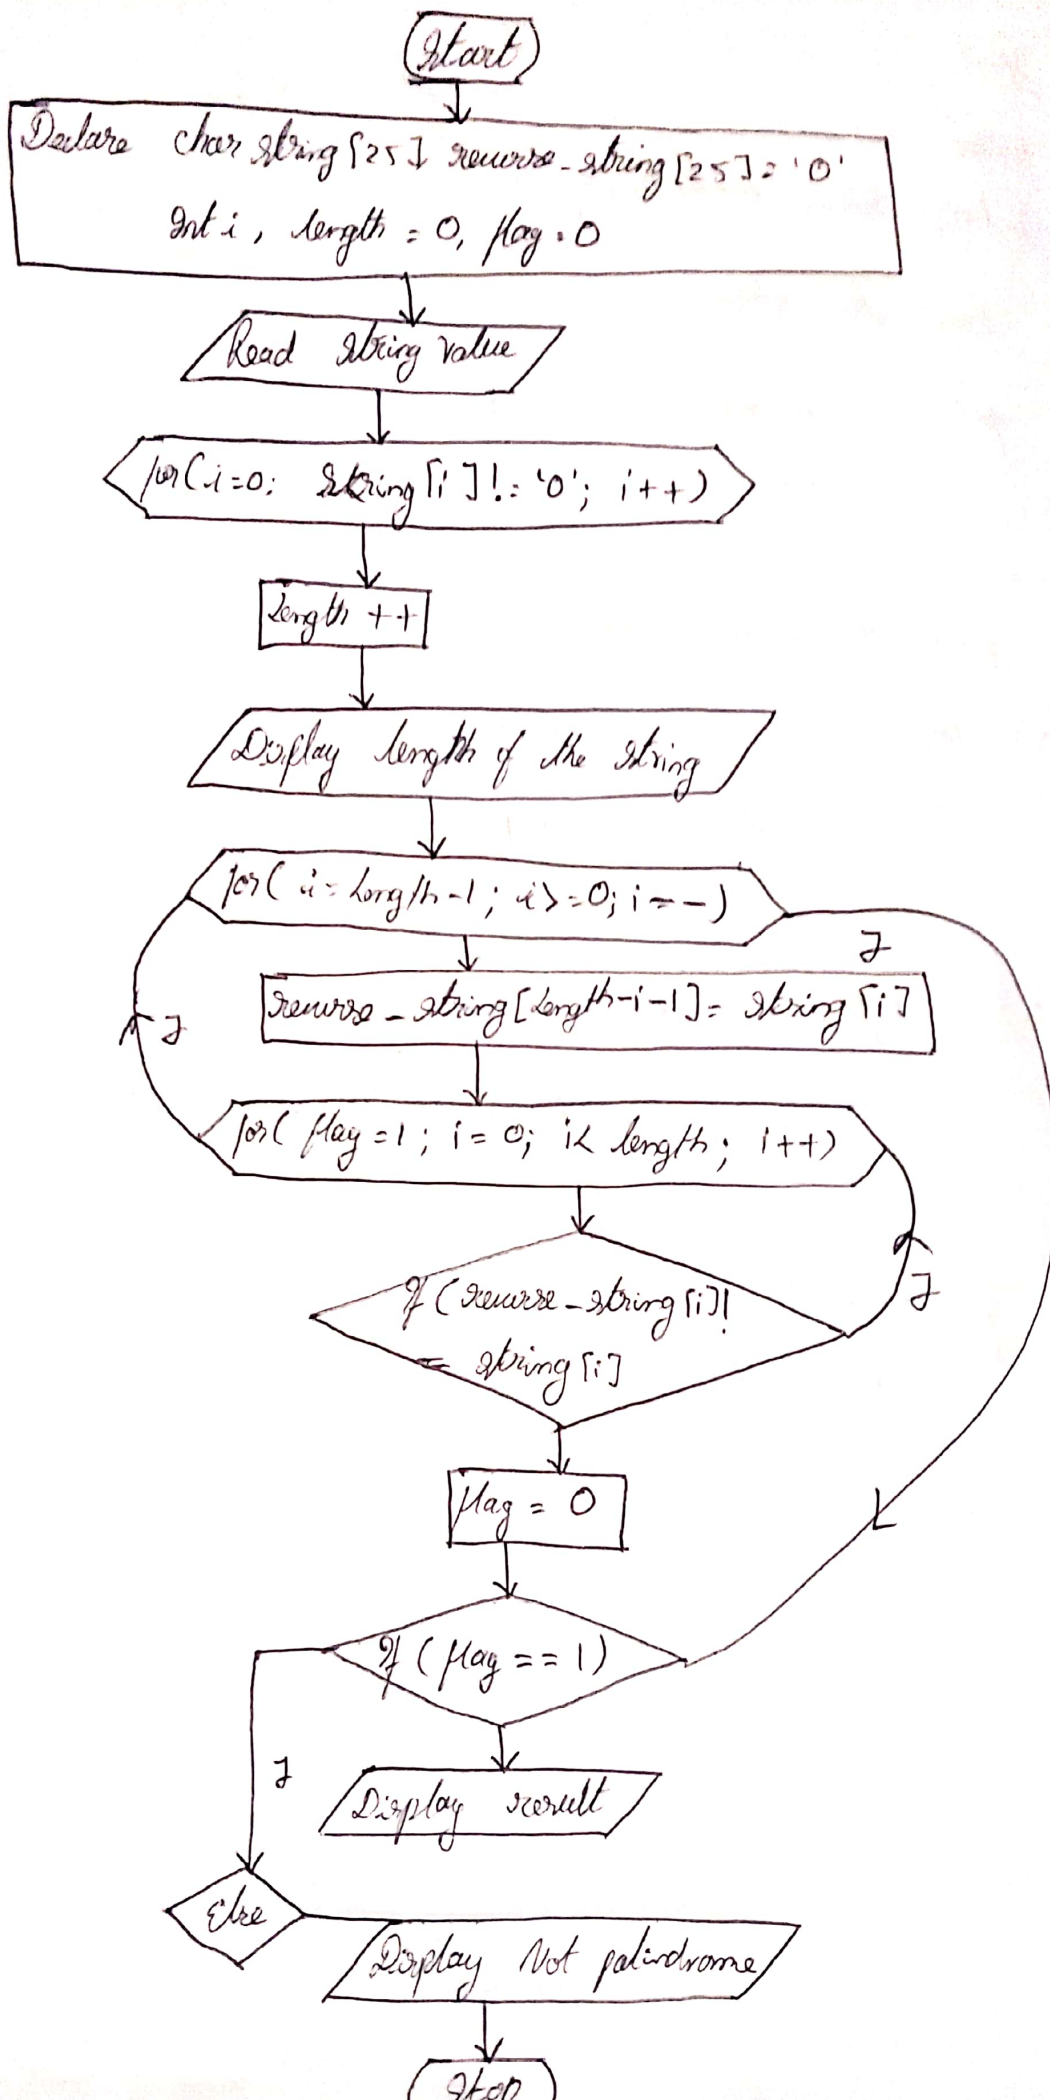 Start
Declare char string [25] reverse-string [25] = '0'
Int i, length = 0, flag = 0
Read string value
for(i=0; string [i]!= '0'; i++)
Length ++
Display length of the string
for( i = Length-1; i>=0; i--)
F
reverse - string [Length-i-1] = string [i]
F
for( flag = 1; i = 0; i< length; i++)
If (reverse - string [i]!
= string [i]
F
flag = 0
If (flag == 1)
F
Display result
Else
Display Not palindrome
Stop